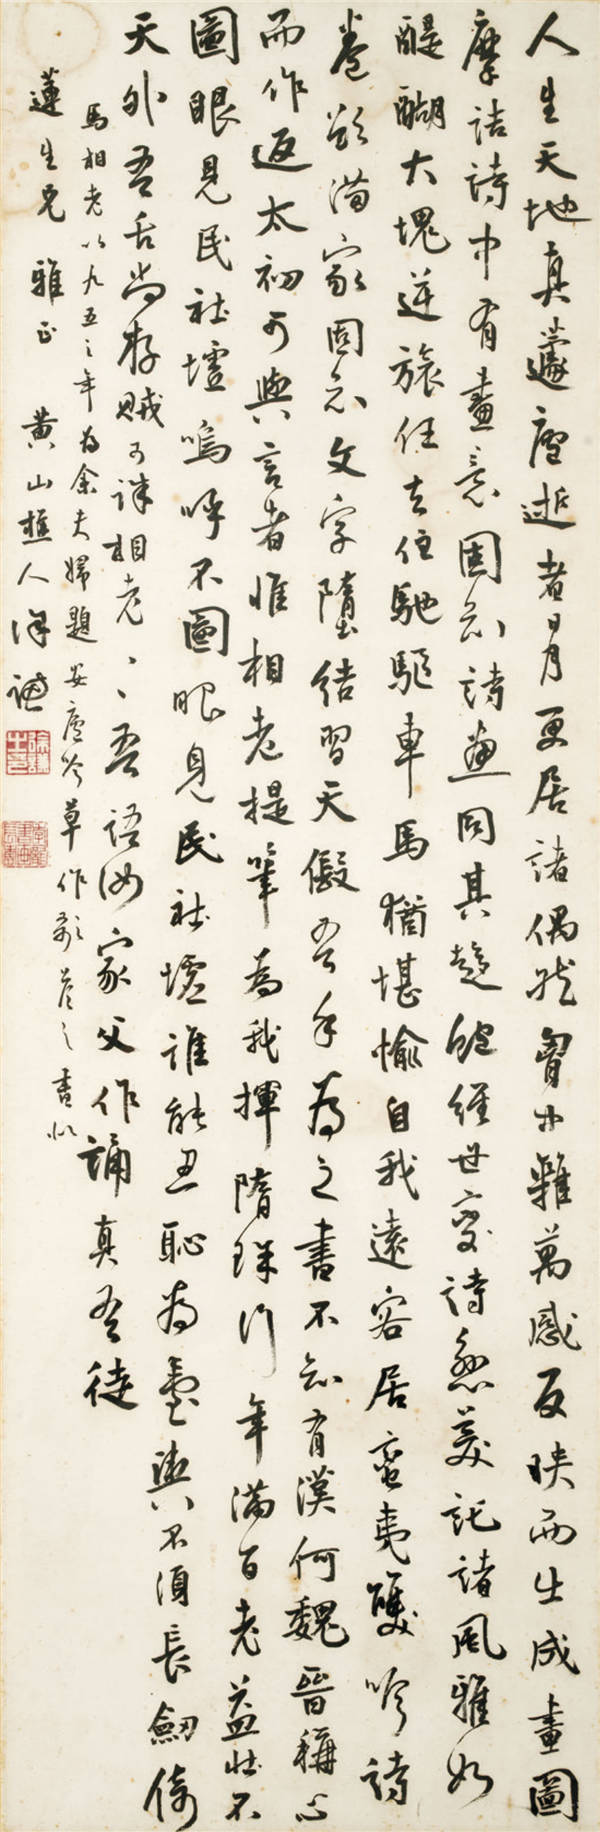 人生天地真蘧廬逝者日月更居諸偶然胷中雜萬感反映而出成畫圖
摩詰詩中有畫意固知詩画同其趣飽經世變詩愈美託諸風雅如
醍醐大塊逆旅任去住馳驅車馬猶堪愉自我遠客居蠻夷雙吟詩
卷欲滿家固知文字墮結習天假吾手為之書不知有漢何魏晉稱心
而作返太初可與言者惟相老提筆為我揮隋珠行年滿百老益壯不
圖眼見民社墟嗚呼不圖眼見民社墟誰能忍恥為臺輿不須長劒倚
天外吾舌尚存賊可誅相老〻吾語汝家父作誦真吾徒
馬相老以九五之年為余夫婦題安廬吟草作歌答之書似
蓮生兄 雅正 黄山樵人徐謙